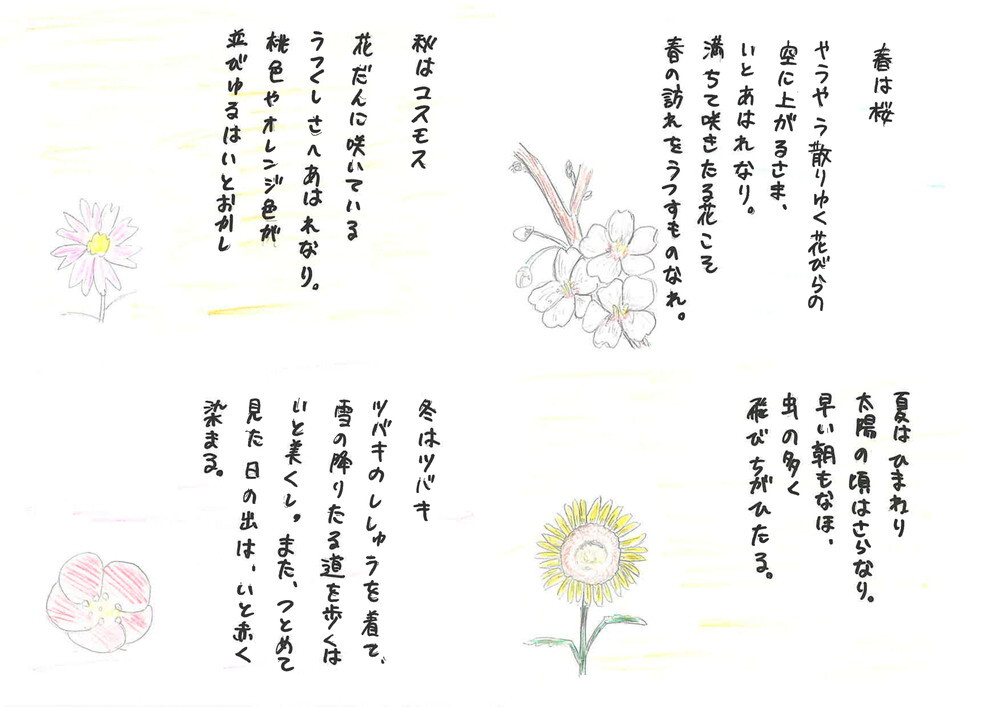 春は桜
やうやう散りゆく花びらの
空に上がるさま、
いとあはれなり。
満ちて咲きたる花こそ
春の訪れをうつすものなれ。
夏はひまわり
太陽の頃はさらなり。
早い朝もなほ、
虫の多く
飛びちがひたる。
秋はコスモス
花だんに咲いている
うつくしさへあはれなり。
桃色やオレンジ色が
並びゆるはいとおかし
冬はツバキ
ツバキのししゅうを着て、
雪の降りたる道を歩くは
いと美くし。また、つとめて
見た日の出は、いと赤く
染まる。